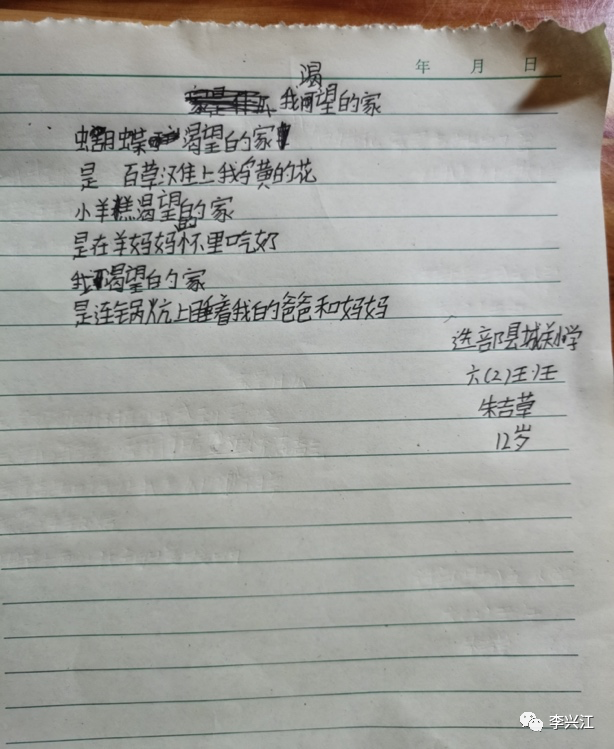 年 月 日
我渴望的家
蝴蝶渴望的家
是 百草滩上我字黄的花
小羊糕渴望的家
是在羊妈妈的怀里吃奶
我渴望的家
是连锅炕上睡着我的爸爸和妈妈
迭部县城关小学
六(2)王王
朱吉草
12岁
李兴江